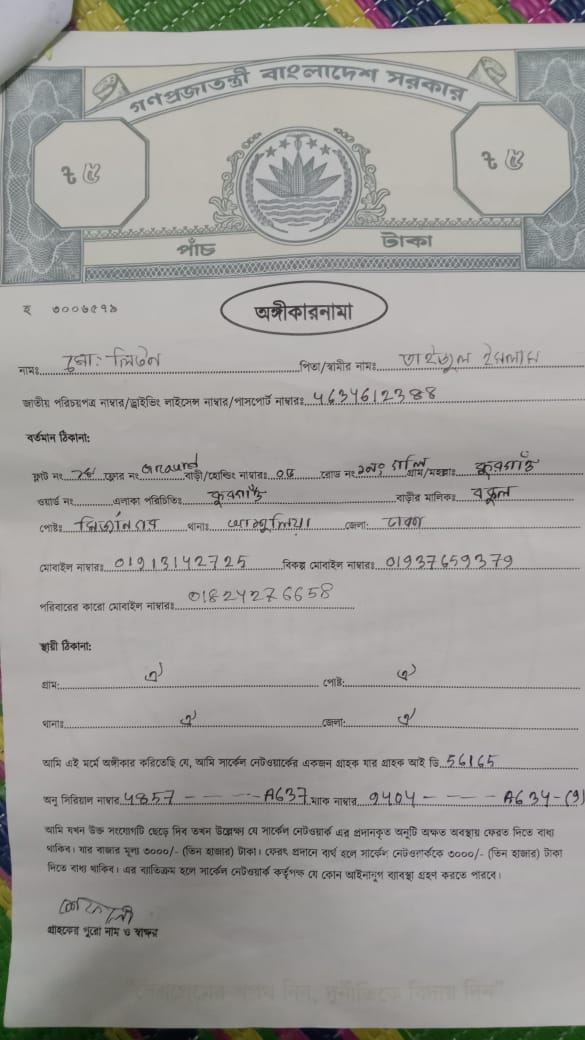 গণপ্রজাতন্ত্রী বাংলাদেশ সরকার
৳ ৫ ৳ ৫
পাঁচ টাকা
ঘ ৩০০৬৫৭৯
অঙ্গীকারনামা
নামঃ মোঃ লিটন পিতা/স্বামীর নামঃ ইসলাম
জাতীয় পরিচয়পত্র নাম্বার/ড্রাইভিং লাইসেন্স নাম্বার/পাসপোর্ট নাম্বারঃ 4634612388
বর্তমান ঠিকানা:
ফ্লাট নং ফ্লোর নং Ground বাড়ী/হোল্ডিং নাম্বারঃ রোড নং ২নং গলি গ্রাম/মহল্লাঃ
ওয়ার্ড নং এলাকা পরিচিতিঃ বাড়ীর মালিকঃ বকুল
পোষ্টঃ থানাঃ জেলা: ঢাকা
মোবাইল নাম্বারঃ 01913142725 বিকল্প মোবাইল নাম্বারঃ 01937659379
পরিবারের কারো মোবাইল নাম্বারঃ 01824276658
স্থায়ী ঠিকানা:
গ্রাম: ঐ পোষ্ট: ঐ
থানাঃ ঐ জেলা: ঐ
আমি এই মর্মে অঙ্গীকার করিতেছি যে, আমি সার্কেল নেটওয়ার্কের একজন গ্রাহক যার গ্রাহক আই ডি 56165
অনু সিরিয়াল নাম্বার 4857 - - - - A637 ম্যাক নাম্বার 9404 - - - - A634-(9)
আমি যখন উক্ত সংযোগটি ছেড়ে দিব তখন উল্লেক্ষ্য যে সার্কেল নেটওয়ার্ক এর প্রদানকৃত অনুটি অক্ষত অবস্থায় ফেরত দিতে বাধ্য
থাকিব। যার বাজার মূল্য ৩০০০/- (তিন হাজার) টাকা। ফেরৎ প্রদানে ব্যর্থ হলে সার্কেল নেটওয়ার্ককে ৩০০০/- (তিন হাজার) টাকা
দিতে বাধ্য থাকিব। এর ব্যতিক্রম হলে সার্কেল নেটওয়ার্ক কর্তৃপক্ষ যে কোন আইনানুগ ব্যবস্থা গ্রহণ করতে পারবে।
গ্রাহকের পুরো নাম ও স্বাক্ষর